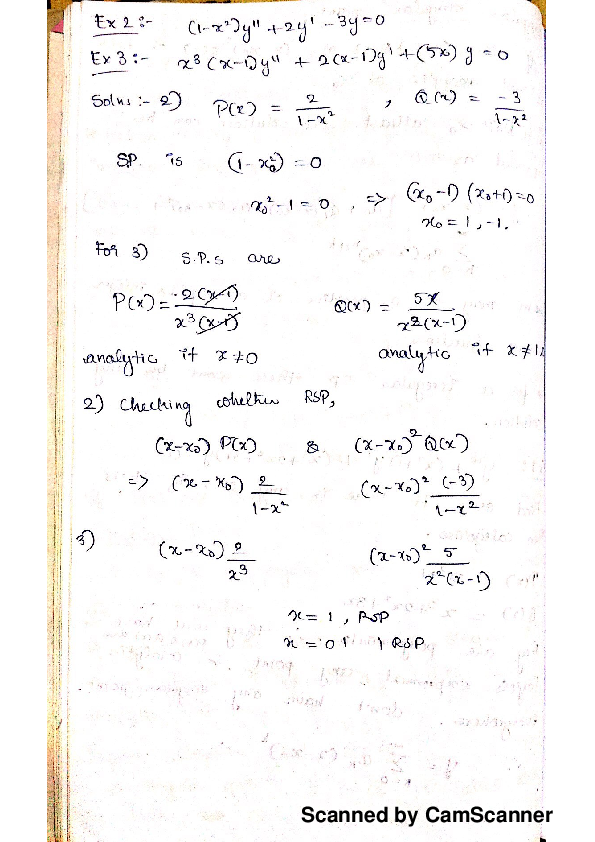 Ex 2 :- (1-x²)y" + 2y' - 3y = 0
Ex 3 :- x³(x-1)y" + 2(x-1)y' + (5x) y = 0
Solns :- 2) P(x) = 2/(1-x²) , Q(x) = -3/(1-x²)
SP. is (1-x₀²) = 0
x₀²-1 = 0 , => (x₀-1) (x₀+1)=0
x₀ = 1, -1.
For 3) S.P.s are
P(x) = 2(x-1)/x³(x-1) Q(x) = 5x/x²(x-1)
analytic if x ≠ 0 analytic if x ≠ 1,
2) Checking whether RSP,
(x-x₀) P(x) & (x-x₀)² Q(x)
=> (x-x₀) 2/(1-x²) (x-x₀)² (-3)/(1-x²)
3) (x-x₀) 2/x³ (x-x₀)² 5/x²(x-1)
x = 1, RSP
x = 0 RSP
Scanned by CamScanner